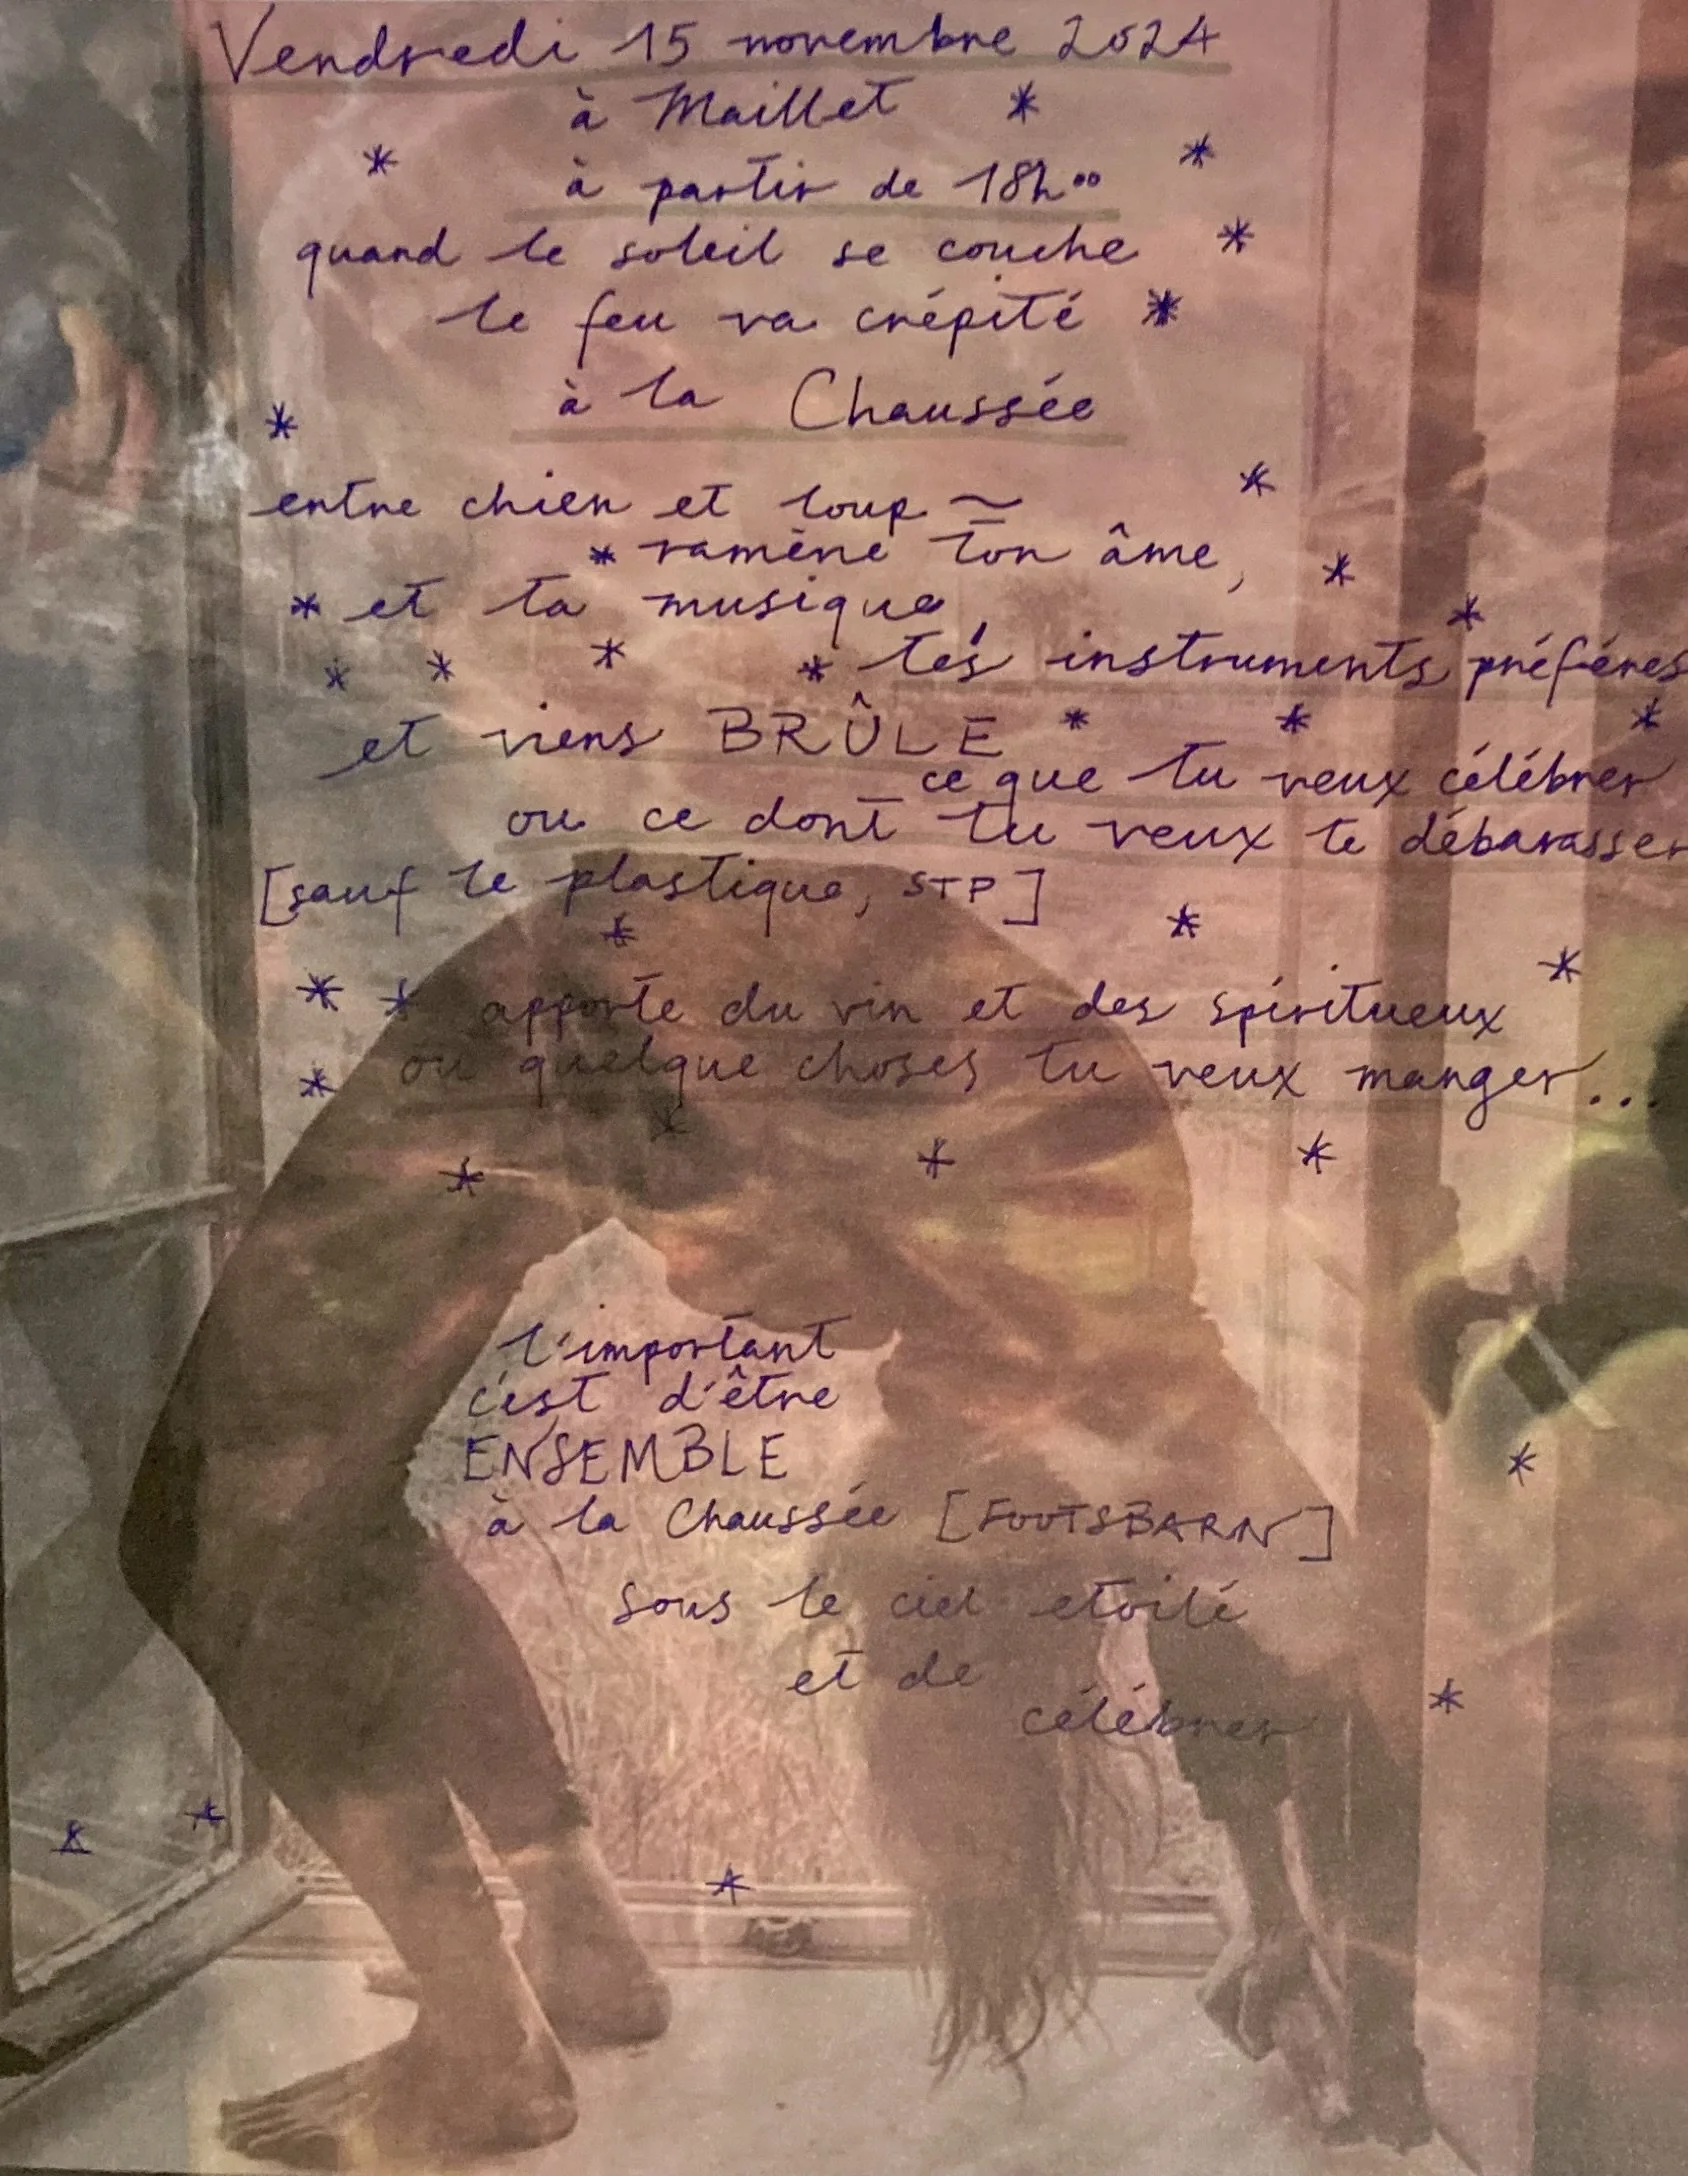 Vendredi 15 novembre 2024
à Maillet
à partir de 18h00
quand le soleil se couche
le feu va crépité
à la Chaussée
entre chien et loup ~
ramène ton âme,
et ta musique,
tes instruments préférés
et viens BRÛLE
ce que tu veux célébrer
ou ce dont tu veux te débarasser
[sauf le plastique, STP]
apporte du vin et des spiritueux
ou quelque choses tu veux manger...
l'important
c'est d'être
ENSEMBLE
à la Chaussée [FOOTSBARN]
sous le ciel etoilé
et de
célébrer